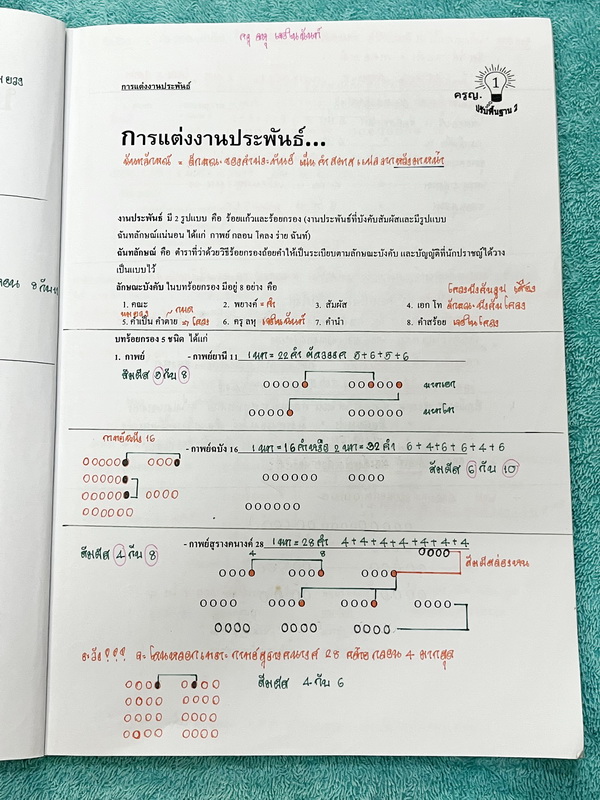 ครุ ลหุ เจอในฉันท์
การแต่งงานประพันธ์
ครูญ.
1
ปรับพื้นฐาน 2
การแต่งงานประพันธ์...
ฉันทลักษณ์ = ลักษณะของคำประพันธ์
งานประพันธ์ มี 2 รูปแบบ คือ ร้อยแก้วและร้อยกรอง (งานประพันธ์ที่บังคับสัมผัสและมีรูปแบบ
ฉันทลักษณ์แน่นอน ได้แก่ กาพย์ กลอน โคลง ร่าย ฉันท์)
ฉันทลักษณ์ คือ ตำราที่ว่าด้วยวิธีร้อยกรองถ้อยคำให้เป็นระเบียบตามลักษณะบังคับ และบัญญัติที่นักปราชญ์ได้วาง
เป็นแบบไว้
ลักษณะบังคับ ในบทร้อยกรอง มีอยู่ 8 อย่าง คือ
1. คณะ 2. พยางค์ = คำ 3. สัมผัส 4. เอก โท
5. คำเป็น คำตาย => โคลง 6. ครุ ลหุ เจอในฉันท์ 7. คำนำ 8. คำสร้อย เจอในโคลง
บทร้อยกรอง 5 ชนิด ได้แก่
1. กาพย์ - กาพย์ยานี 11 1 บท = 22 คำ 5+6+5+6
สัมผัส 5 กับ 8
บาทเอก
บาทโท
กาพย์ฉบัง 16
- กาพย์ฉบัง 16 1 บท = 16 คำหรือ 2 บท = 32 คำ 6+4+6+6+4+6
สัมผัส 6 กับ 10
- กาพย์สุรางคนางค์ 28 1 บท = 28 คำ 4+4+4+4+4+4+4
สัมผัส 4 กับ 8
4 8
สัมผัสระหว่างบท
ระวัง ! ! ! จะโดนหลอก เพราะกาพย์สุรางคนางค์ 28 คล้ายกลอน 4 มากสุด
สัมผัส 4 กับ 6